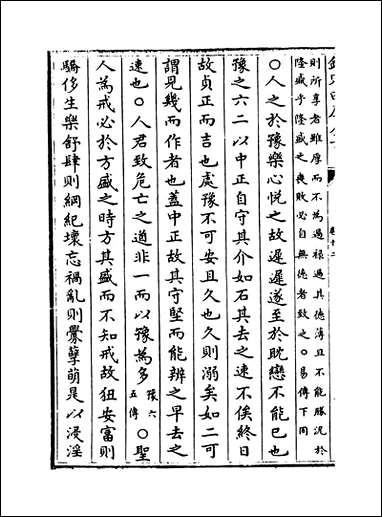 則所享者雖厚而不為過祿過其德薄且不能勝況於
隆盛乎隆盛之喪敗必自無德者致之○易傳下同
○人之於豫樂心悅之故遲遲遂至於耽戀不能已也
豫之六二以中正自守其介如石其去之速不俟終日
故貞正而吉也處豫不可安且久也久則溺矣如二可
謂見幾而作者也蓋中正故其守堅而能辨之早去之
速也○人君致危亡之道非一而以豫為多豫六五傳○聖
人為戒必於方盛之時方其盛而不知戒故狃安富則
驕侈生樂舒肆則綱紀壞忘禍亂則釁孽萌是以浸淫